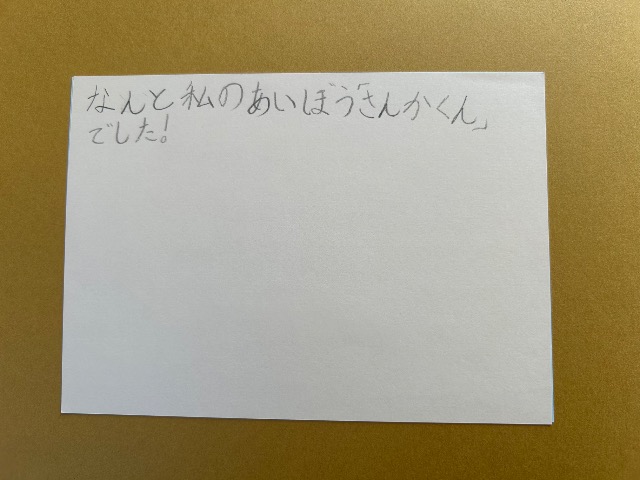 なんと私のあいぼう「さんかくん」
でした!